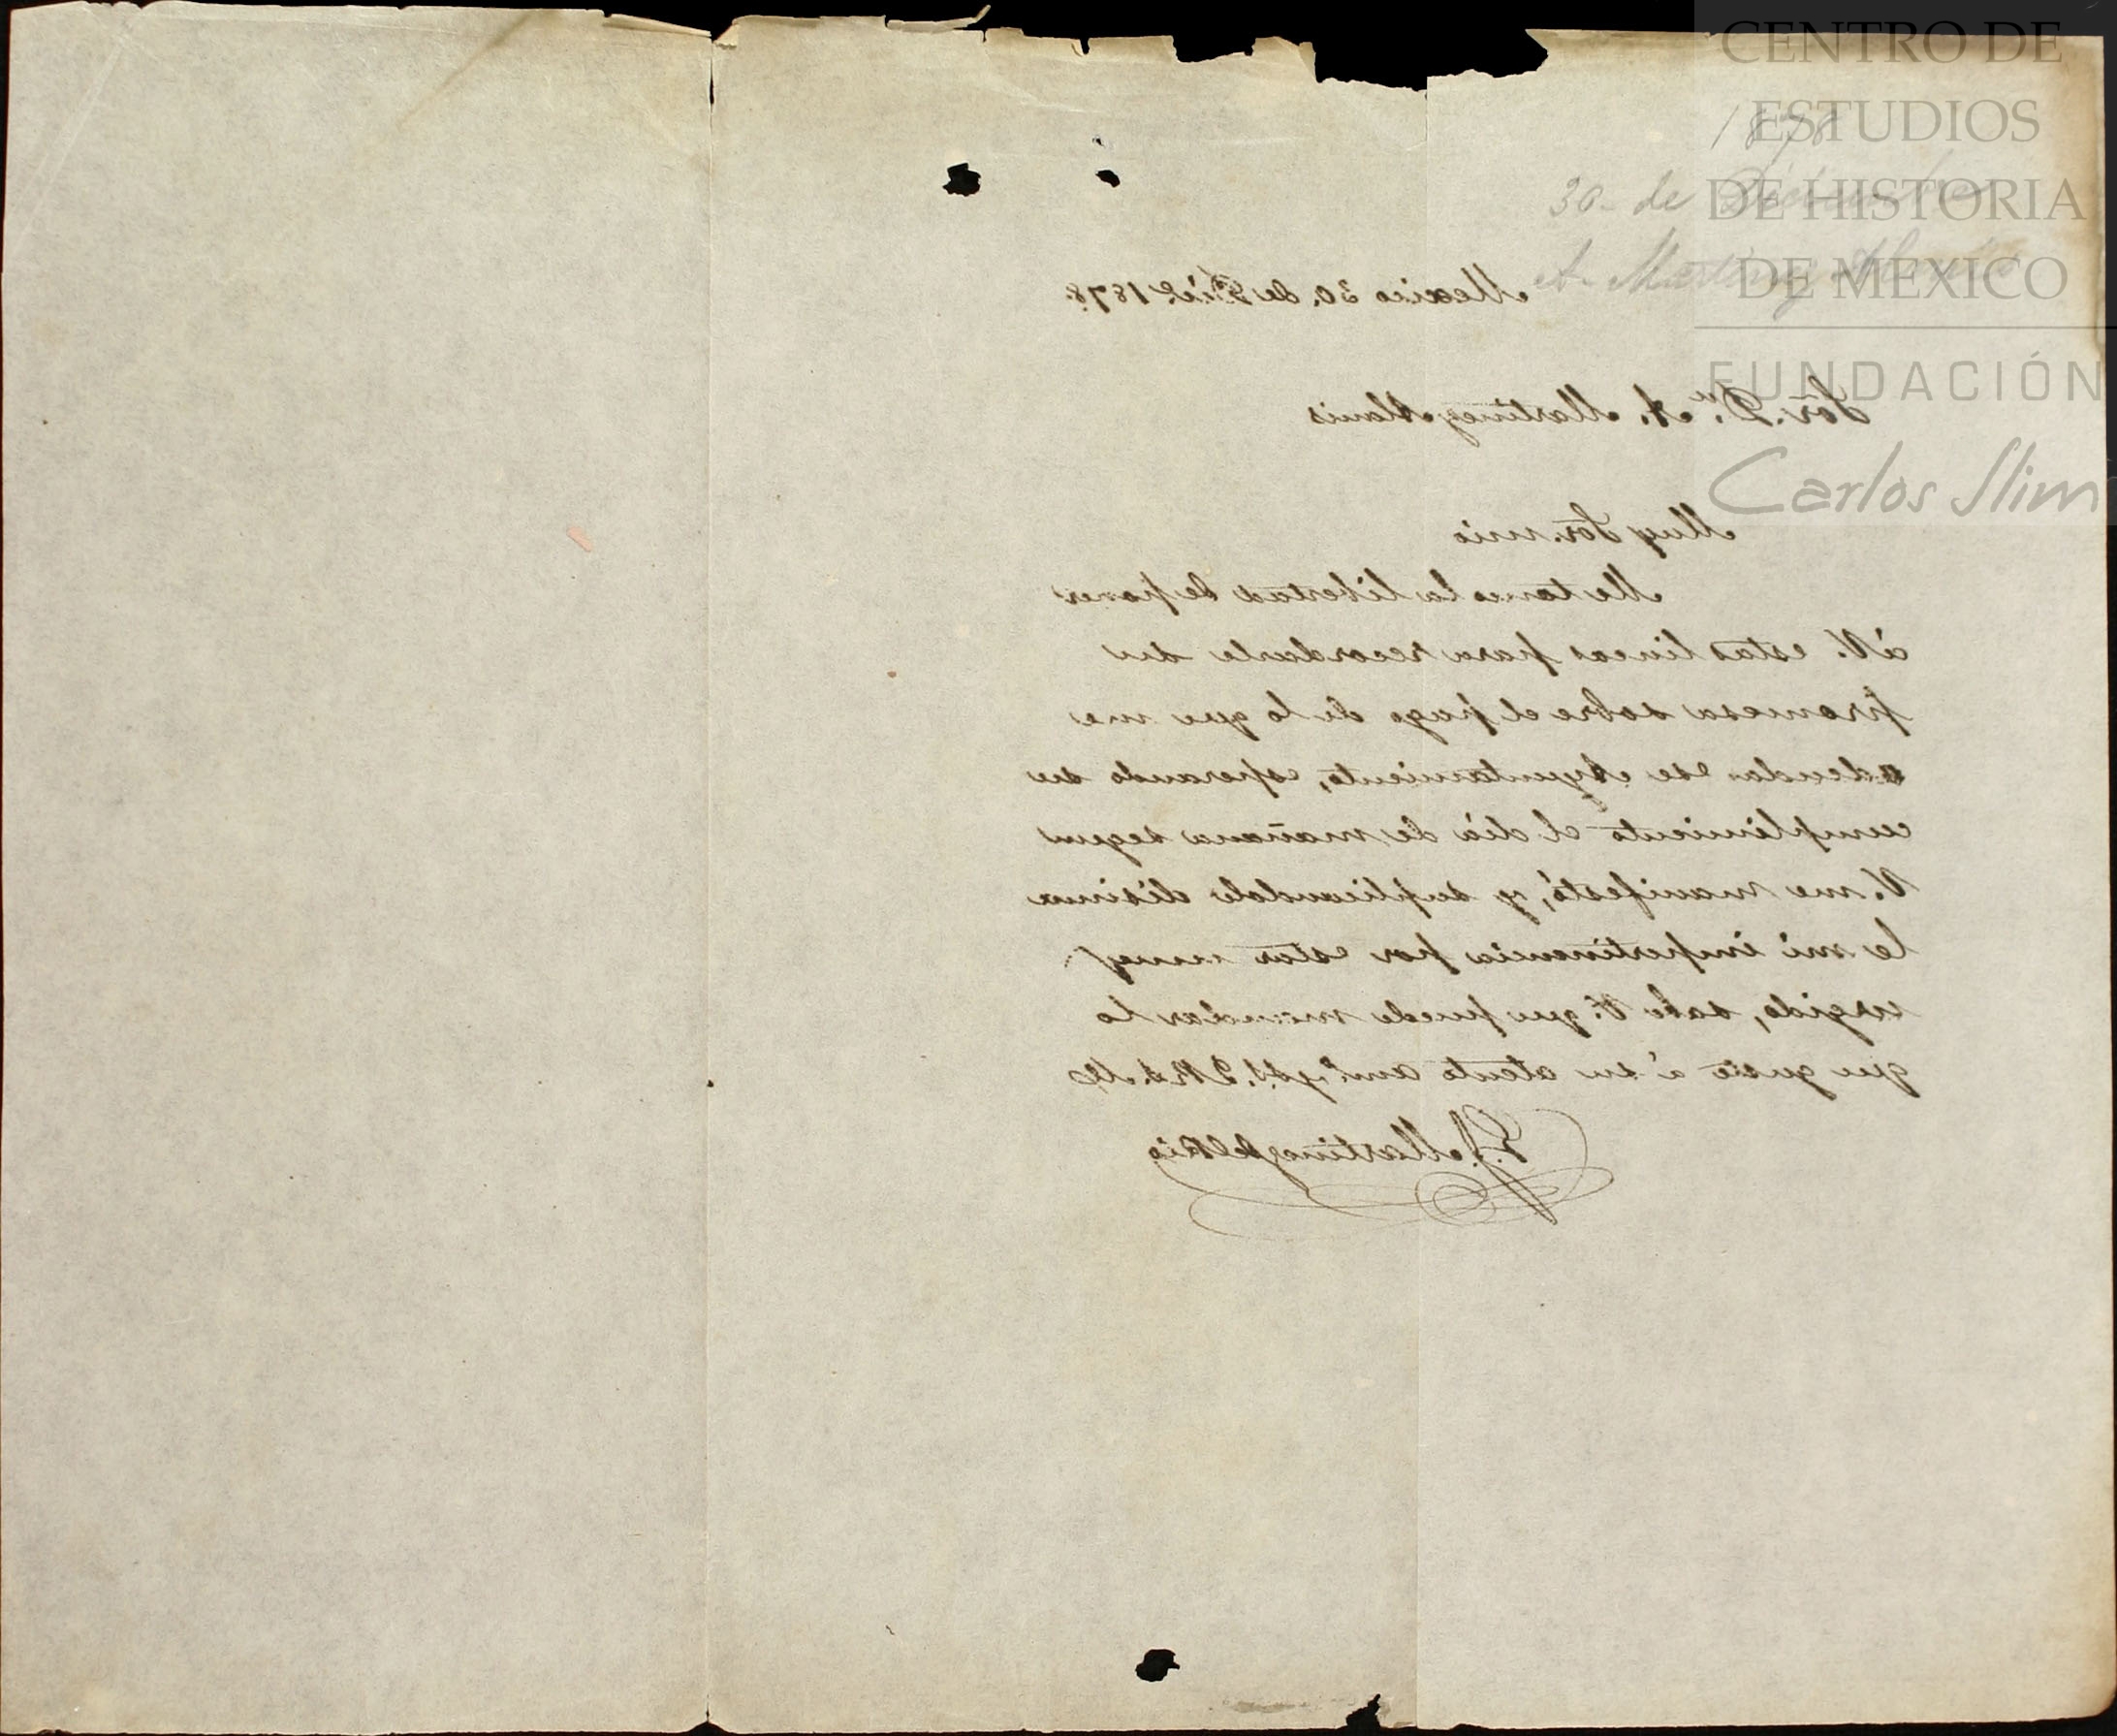 CENTRO DE
ESTUDIOS
DE HISTORIA
DE MÉXICO
FUNDACIÓN
Carlos Slim
1878
30- de Diciembre
A. Martinez Alanis
Mexico 30. de Dice. 1878.
Sor. Dn. A. Martinez Alanis
Muy Sor. mio
Me tomo la libertad de poner
á V. estas lineas para recordarle su
promesa sobre el pago de lo que me
adeuda ese Ayuntamiento, esperando su
cumplimiento el dia de mañana segun
V. me manifestó, y suplicandole disimu
le mi impertinencia por estar muy
urgido, sabe V. que puede mandar lo
que guste á su atento amo. y S. S. Q. B. S. M.
Martinez del Rio